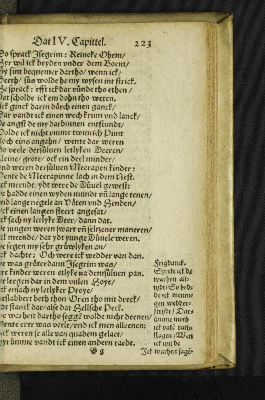 Dat IV. Capittel. 223
Do sprack Isegrim: Reineke Ohem/
Hyr wil ick beyden vnder dem Boem/
Gy sint bequemer dartho/ wenn ick/
He sprack: efft ick dar vünde tho ethen/
Dat scholde ick em don tho weten.
Ick ginck darin dörch einen ganck/
Dar vandt ick einen wech krum vnd lanck/
De angst de my darbinnen entfundt/
Wolde ick nicht umme twintich Punt
Noch eins angahn/ wente dar weren
So veele dersüluen letlyken Deeren/
Kleine/ grote/ ock ein deel minder/
Vnd weren dersüluen Meerapen kinder:
Wente de Meerapinne lach in dem Nest.
Ick meende/ ydt were de Düuel gewest
Se hadde einen wyden mundt vñ lange tenen/
Vnd lange negele an Vöten vnd Henden/
Ock einen langen steert angesat/
Ick sach ny letlyk Deer/ dann dat.
De jungen weren swart vñ seltzener maneren/
Ick meende/ dat ydt junge Düuele weren.
Se segen my sehr grüwlyken an/
Ick dachte: Och were ick wedder van dan.
Se was gröter dann Isegrim was/
Ere kinder weren etlyke na demsüluen pas.
Se legen dar in dem vulen Hoye/
Ick ensach ny letlyker Proye/
Beslabbert beth thon Oren tho mit dreck/
Ydt stanck dar/ alse dat Hellsche Peck.
De warheit dartho seggẽ wolde nicht deenen/
Wente erer was veele/ vnd ick men alleene;
Ick weren se alle van quadem gelaet/
Hyr umme vandt ick einen andern raedt.
Fridanck.
Sprekt ick de
warheit alle
tydt/ So hebbe
gen wedder-
stryt/ Dar
umme moth
ick vakẽ nahr
slagen/ Wen
ick wil de
Gg
Ick warheit sage